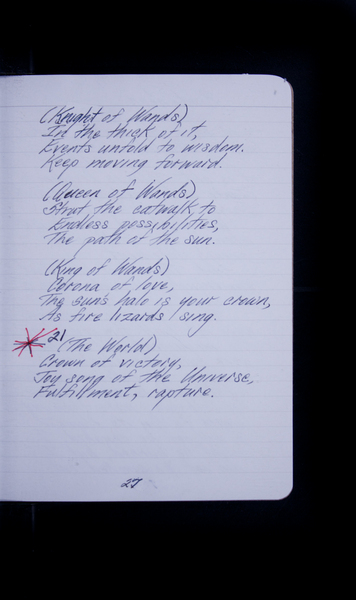 (Knight of Wands)
In the thick of it,
Events unfold to wisdom.
Keep moving forward.
(Queen of Wands)
Strut the catwalk to
Endless possibilities,
The path of the sun.
(King of Wands)
Corona of love,
The sun's halo is your crown,
As fire lizards sing.
21
(The World)
Crown of victory,
Joy song of the Universe,
Fulfillment, rapture.
27